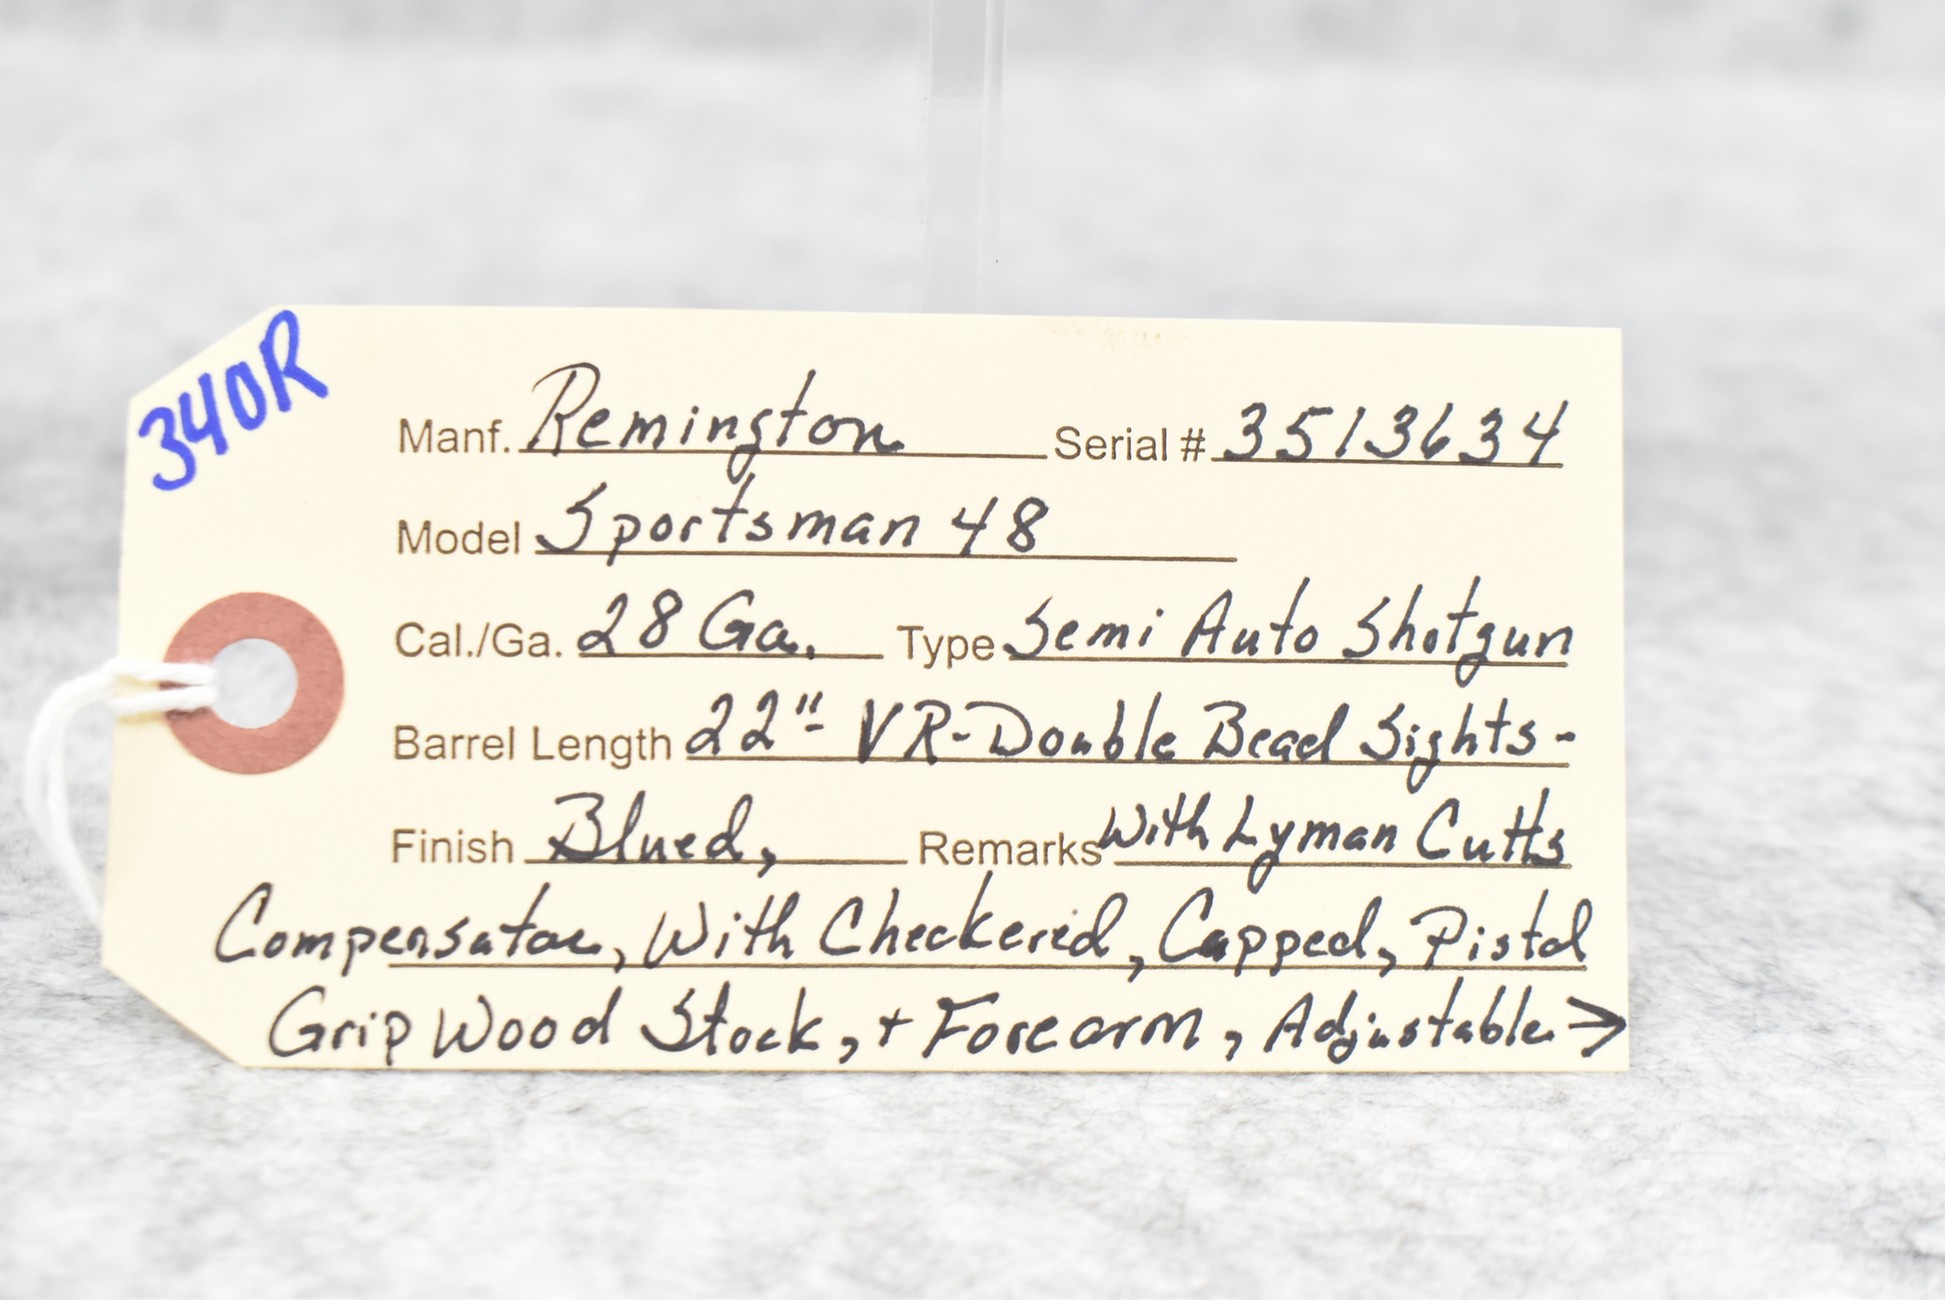 340R
Manf. Remington Serial # 3513634
Model Sportsman 48
Cal./Ga. 28 Ga. Type Semi Auto Shotgun
Barrel Length 22"- VR-Double Bead Sights-
Finish Blued, Remarks With Lyman Cutts
Compensator, With Checkered, Capped, Pistol
Grip Wood Stock, + Forearm, Adjustable →